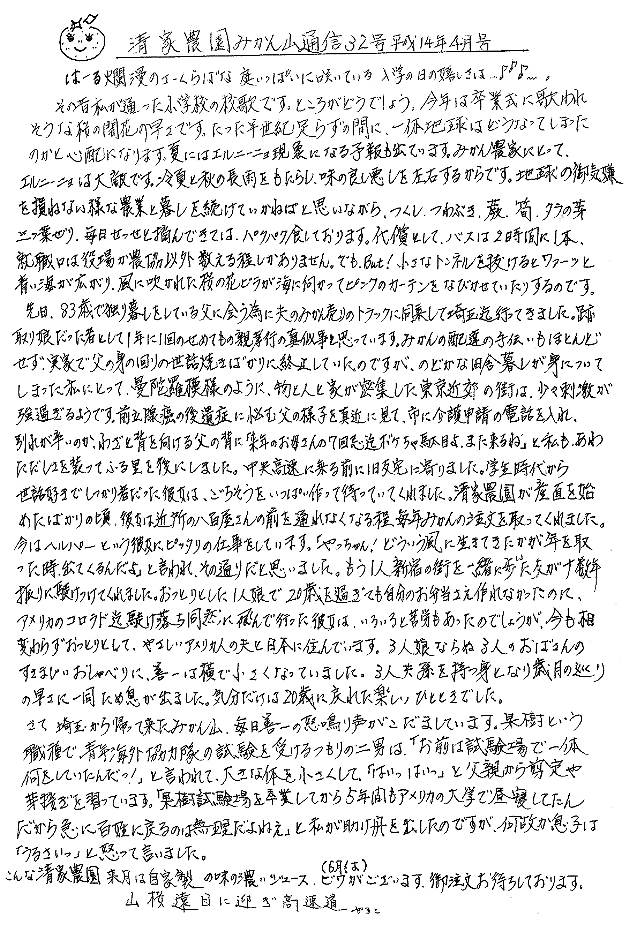 清家農園みかん山通信32号平成14年4月号
はーる爛漫のさーくらばな 庭いっぱいに咲いている 入学の日の嬉しさは…♪♪♪…。
その昔私が通った小学校の校歌です。ところがどうでしょう。今年は卒業式に歌われ
そうな桜の開花の早さです。たった半世紀足らずの間に、一体地球はどうなってしまった
のかと心配になります。夏にはエルニーニョ現象になる予報も出ています。みかん農家にとって、
エルニーニョは大敵です。冷夏と秋の長雨をもたらし、味の良し悪しを左右するからです。地球の御機嫌
を損ねない様な農業と暮しを続けていかねばと思いながら、つくし、つわぶき、蕨、筍、タラの芽
三つ葉ぜり、毎日せっせと摘んできては、パクパク食しております。代償として、バスは2時間に1本、
就職口は役場か農協以外数える程しかありません。でも、But! 小さなトンネルを抜けるとワァーッと
青い海が広がり、風に吹かれた桜の花ビラが海に向かってピンクのカーテンをなびかせていたりするのです。
先日、83歳で独り暮しをしている父に会う為に夫のみかん売りのトラックに同乗して埼玉迄行てきました。跡
取り娘だった者として1年に1回のせめてもの親孝行の真似事と思っています。みかんの配達の手伝いもほとんど
せず実家で父の身の回りの世話焼きばかりに終止していたのですが、のどかな田舎暮しが身について
しまった私にとって、曼陀羅模様のように、物と人と家が密集した東京近郊の街は、少々刺激が
強過ぎるようです。前立腺癌の後遺症に悩む父の様子を真近に見て、市に介護申請の電話を入れ、
別れが辛いのか、わざと背を向ける父の背に「来年のお母さんの7回忌迄ボケちゃ駄目よ、また来るね」と私も、あわ
ただしさを装ってふる里を後にしました。中央高速に乗る前に旧友宅に寄りました。学生時代から
世話好きでしっかり者だった彼女は、ごちそうをいっぱい作って待っていてくれました。清家農園が産直を始
めたばかりの頃、彼女は近所の八百屋さんの前を通れなくなる程、毎年みかんの注文を取ってくれました。
今はヘルパーという彼女にピッタリの仕事をしています。「やっちゃん!どういう風に生きてきたかが年を取
った時出てくるんだよ」と言われ、その通りだと思いました。もう1人新宿の街を一緒に歩いた友が十数年
振りに駆けつけてくれました。おっとりとした1人娘で20歳を過ぎても自分のお弁当さえ作れなかったのに、
アメリカのコロラド迄駆け落ち同然に飛んで行った彼女は、いろいろと苦労もあったのでしょうが、今も相
変わらずおっとりとして、やさしいアメリカ人の夫と日本に住んでいます。3人娘ならぬ3人のおばさんの
すさまじいおしゃべりに、善一は横で小さくなっていました。3人共孫を持つ身となり歳月の巡り
の早さに一同ため息が出ました。気分だけは20歳に戻れた楽しいひとときでした。
さて 埼玉から帰って来たみかん山、毎日善一の怒鳴り声がこだましています。果樹という
職種で青年海外協力隊の試験を受けるつもりの二男は、「お前は試験場で一体
何をしていたんだっ!」と言われて、大きな体を小さくして、「はいっはいっ」と父親から剪定や
芽接ぎを習っています。「果樹試験場を卒業してから5年間もアメリカの大学で昼寝してたん
だから急に百姓に戻るのは無理だよねえ」と私が助け舟を出したのですが、何故か息子は
「うるさいっ」と怒って言いました。
こんな清家農園 来月は自家製の味の濃いジュース、(6月は)ビワがございます。御注文お待ちしております。
山桜遠目に迎ぎ高速道 ーやすこ